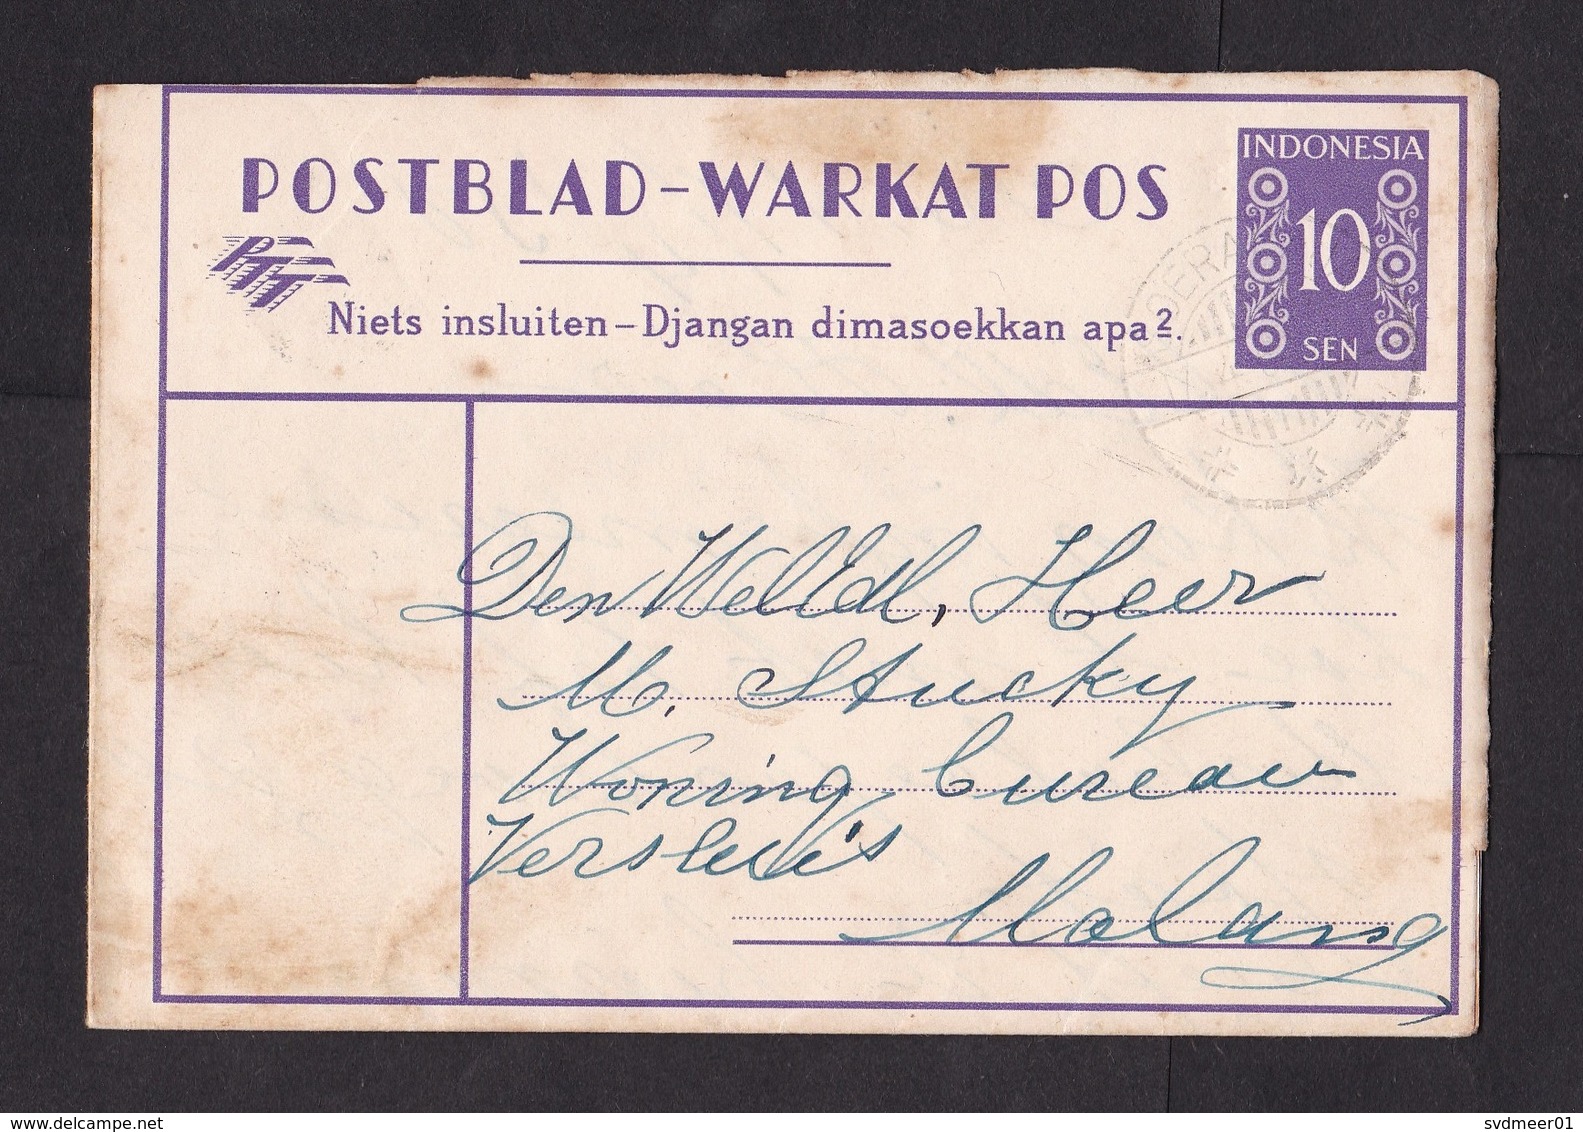 POSTBLAD-WARKAT POS
INDONESIA
10
SEN
PTT
Niets insluiten-Djangan dimasoekkan apa2.
Den WelEdl, Heer
M. Stucky
Woning bureau
Versluis
Malang
www.delcampe.net
svdmeer01